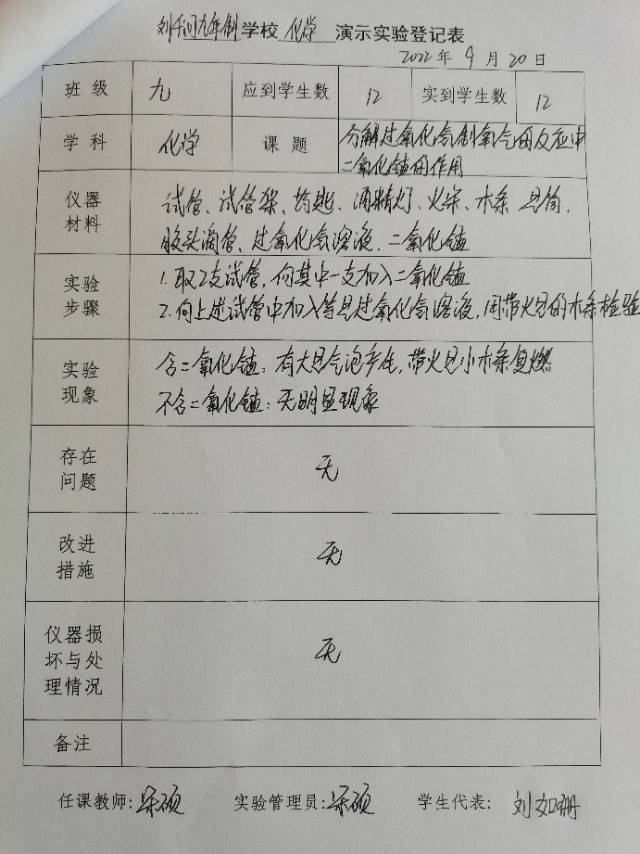 刘千户九年制学校 化学 演示实验登记表
2022年9月20日
班级 九 应到学生数 12 实到学生数 12
学科 化学 课题 分解过氧化氢制氧气的反应中
二氧化锰的作用
仪器
材料
试管、试管架、药匙、酒精灯、火柴、木条 量筒、
胶头滴管、过氧化氢溶液、二氧化锰
实验
步骤
1.取2支试管,向其中一支加入二氧化锰
2.向上述试管中加入等量过氧化氢溶液,用带火星的木条检验
实验
现象
含二氧化锰:有大量气泡产生,带火星小木条复燃
不含二氧化锰:无明显现象
存在
问题
无
改进
措施
无
仪器损
坏与处
理情况
无
备注
任课教师: 实验管理员: 学生代表: 刘如珊